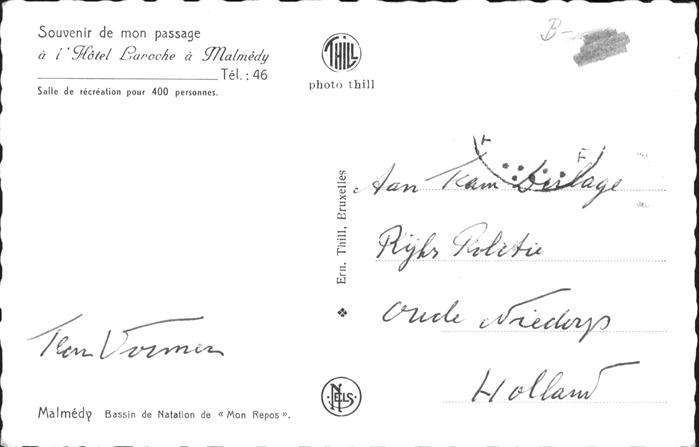 Souvenir de mon passage
à l'Hôtel Laroche à Malmédy
Tél.: 46
Salle de récréation pour 400 personnes.
THILL
photo thill
B-
Ern. Thill, Bruxelles
Aan
Rijks Politie
Oude Niedorp
Holland
Vormen
NELS
Malmédy Bassin de Natation de « Mon Repos ».